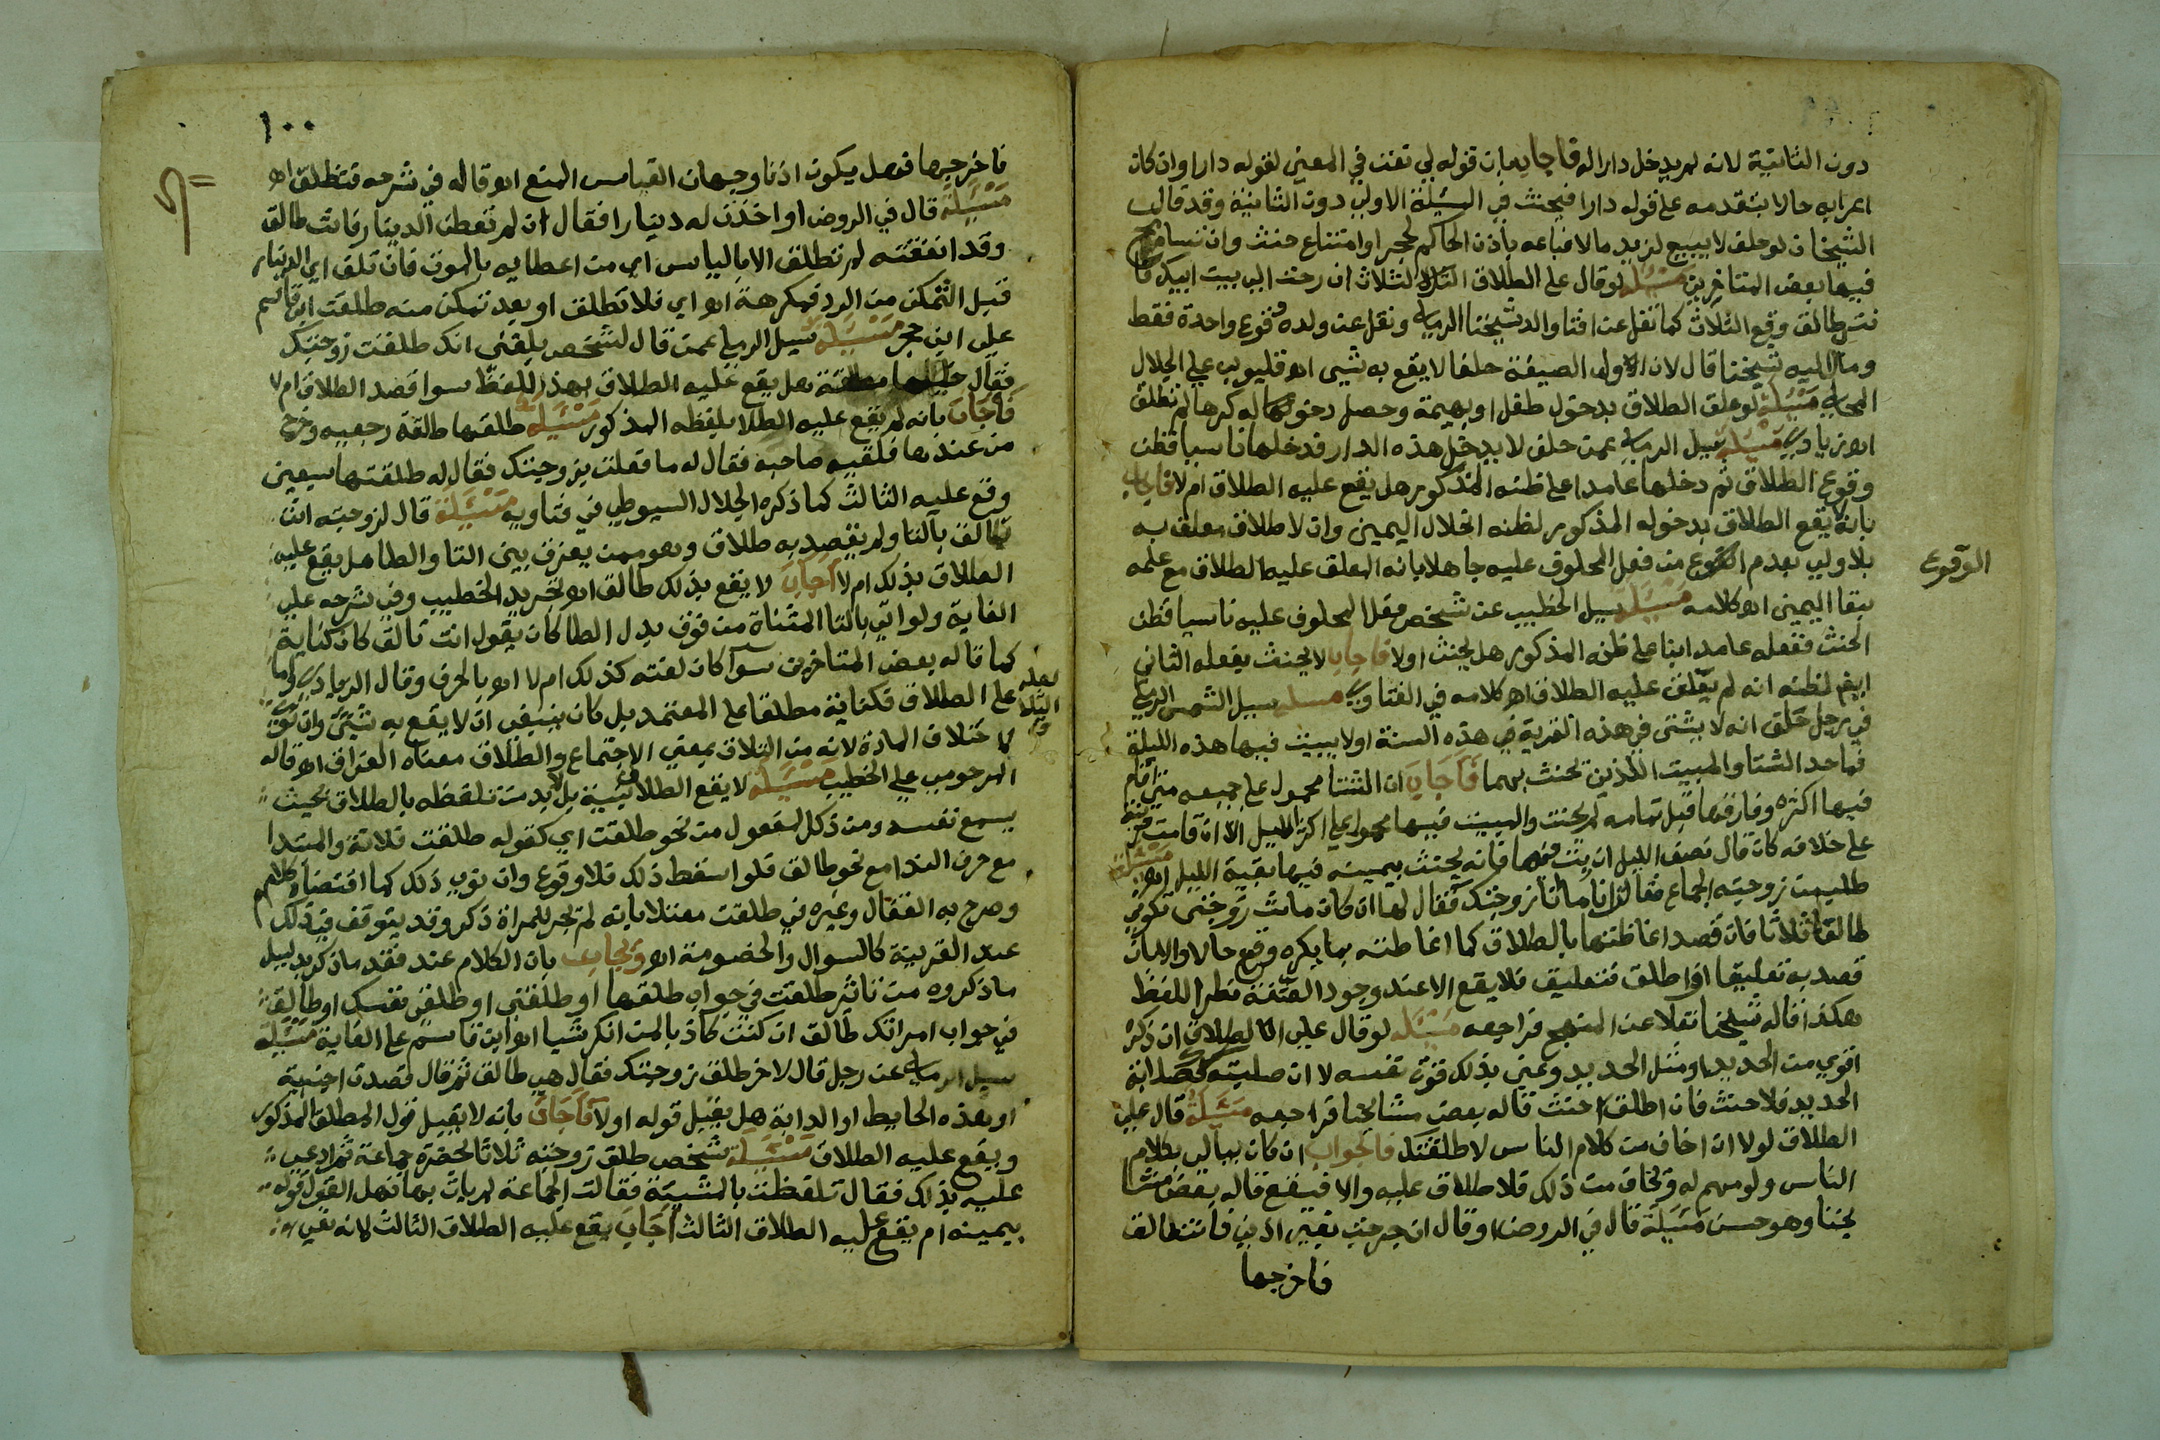 دون الثانية لانه لم يدخل دارا له فاجاب بان قوله لي نعت في المعني لقوله دارا وان كان
اعرابه حالا بتقدمه على قوله دارا فيحنث في المسيلة الاولي دون الثانية وقد قال
الشيخان لو حلف لا يبيع لزيد مالا فباعه باذن الحاكم لحجر او امتناع حنث وان تسامح
فيها بعض المتاخرين مسيلة لو قال على الطلاق الثلاث ان رحت الي بيت ابيك فا
نت طالق وقع الثلاث كما نقل عن افتا والد شيخنا الرملي ونقل عن ولده وقوع واحدة فقط
ومال اليه شيخنا قال لان الاولي الصيغة حلفا لا يقع به شيء اه قليوبي علي الجلال
المحلي مسيلة لو علق الطلاق بدخول طفل او بهيمة وحصل دخولهما له كرها لم تطلق
اه زيادي مسيلة سيل الرملي عمن حلف لا يدخل هذه الدار فدخلها ناسيا فظن
وقوع الطلاق ثم دخلها عامدا على ظنه المذكور هل يقع عليه الطلاق ام لا فاجاب
بانه لا يقع الطلاق بدخوله المذكور لظنه انحلال اليمين وان لا طلاق معلق به
بل اولي بعدم الوقوع من فعل المحلوف عليه جاهلا بانه المعلق عليه الطلاق مع علمه
الوقوع
ببقا اليمين اه كلامه مسيلة سيل الخطيب عن شخص فعل المحلوف عليه ناسيا فظن
الحنث ففعله عامدا بنا على ظنه المذكور هل يحنث اولا فاجاب لا يحنث بفعله الثاني
ايضا لظنه انه لم يعلق عليه الطلاق اه كلامه في الفتاوي مسلة سيل الشمس الرملي
في رجل حلف انه لا يشتي في هذه القرية في هذه السنة او لا يبيت فيها هذه الليلة
فما حد الشتا والمبيت اللذين يحنث بهما فاجاب ان الشتا محمول على جميعه متي اقام
فيها اكثره وفارقها قبل تمامه لم يحنث والمبيت فيها محمول على اكثر الليل الا ان قامت قرينة
على خلافه كان قال نصف الليل ان بت فيها فانه يحنث بمبيته فيها بقية الليل اه مسيلة
طلبت زوجته الجماع فقال انا ما انا زوجتك فقال لها ان كان مانت زوجتي تكوني
طالقا ثلاثا فان قصد اغاظتها بالطلاق كما اغاظته بما يكره وقع حالا والا بان
قصد به تعليقا او اطلق فتعليق فلا يقع الا عند وجود الصفة نظرا للفظ
هكذا قاله شيخنا نقلا عن المنهج فراجعه مسيلة لو قال علي الطلاق ان ذكره
اقوي من الحديد او مثل الحديد وعني بذلك قوة نفسه لا ان صلبيته كصلابة
الحديد فلا حنث فان اطلق حنث قاله بعض مشايخنا فراجعه مسيلة قال علي
الطلاق لولا ان اخاف من كلام الناس لا طلقتك فالجواب ان كان يبالي بكلام
الناس ولومهم له ويخاف من ذلك فلا طلاق عليه والا فيقع قاله بعض مشا
يخنا وهو حسن مسيلة قال في الروض او قال ان خرجت بغير اذني فانت طالق
فاخرجها
١٠٠
فاخرجها فهل يكون اذنا وجهان القياس المنع اه قاله في شرحه فتطلق اه
مسيلة قال في الروض او اخذت له دينارا فقال ان لم تعطن الدينار فانت طالق
وقد انفقته لم تطلق الا بالياس اي من اعطايه بالموت فان تلف اي الدينار
قبل التمكن من الرد فمكرهة اه اي فلا تطلق او بعد تمكن منه طلقت ابن قاسم
على ابن حجر مسيلة سيل الرملي عمن قال لشخص بلغني انك طلقت زوجتك
فقال هل يقع عليه الطلاق بهذا اللفظ سوا قصد الطلاق ام لا
فاجاب بانه لم يقع عليه الطلاق بلفظه المذكور مسيلة طلقها طلقة رجعيه وخرج
من عندها فلقيه صاحبه فقال له ما فعلت بزوجتك فقال له طلقتها سبعين
وقع عليه الثالث كما ذكره الجلال السيوطي في فتاويه مسيلة قال لزوجته انت
تالق بالتا ولم يقصد به طلاق وهو ممن يعرف بين التا والطا هل يقع عليه
الطلاق بذلك ام لا اجاب لا يقع بذلك طالق اه تجريد الخطيب وفي شرحه على
الغاية ولو اتي بالتا المثناة من فوق بدل الطا كان يقول انت تالق كان كناية
كما قاله بعض المتاخرين سوا كان لغته كذلك ام لا اه بالحرف وقال الزيادي واما
على الطلاق فكناية مطلقا على المعتمد بل كان ينبغي ان لا يقع به شيء وان نوي
لعله التلا ق
لاختلاف المادة لانه من التلاق بمعني الاجتماع والطلاق معناه الفراق اه قاله
المرحومي علي الخطيب مسيلة لا يقع الطلاق بنية بل لابد من تلفظه بالطلاق بحيث
يسمع نفسه ومن ذكر المفعول من نحو طلقت اي كقوله طلقت فلانة والمبتدا
مع حرف الندا مع نحو طالق فلو اسقط ذلك فلا وقوع وان نوي ذلك كما اقتضاه كلامهم
وصرح به القفال وغيره في طلقت معتلا بانه لم يجر للمراة ذكر وقد يتوقف في ذلك
عند القرينة كالسوال والخصومة اه ويجاب بان الكلام عند فقد ما ذكر بدليل
ما ذكروه من تاثير طلقت في جواب طلقها او طلقني او طلقي نفسك او طالق
في جواب امراتك طالق ان كنت كاذبا لمن انكر شيا اه ابن قاسم على الغاية مسيلة
سيل الرملي عن رجل قال لاخر طلق زوجتك فقال هي طالق ثم قال قصدت اجنبية
او هذه الحايط او الدابة هل يقبل قوله اولا فاجاب بانه لا يقبل قول المطلق المذكور
ويقع عليه الطلاق مسيلة شخص طلق زوجته ثلاثا بحضرة جماعة ثم ادعي
عليه بذلك فقال تلفظت بالمشيئة فقالت الجماعة لم يات بها فهل القول قوله
بيمينه ام يقع عليه الطلاق الثالث اجاب يقع عليه الطلاق الثالث لانه نفي